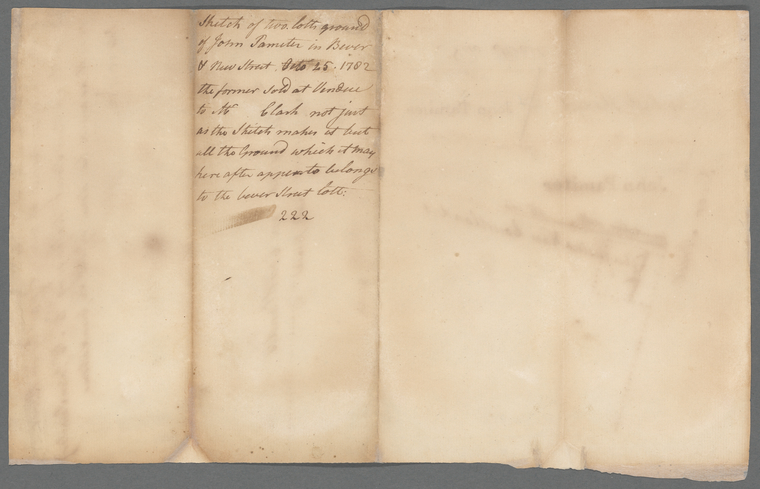 Sketch of two lotts ground
of John Pameter in Bever
& New Street Octo 25. 1782
the former sold at Vendue
to Mr Clark not just
as the Sketch makes it but
all the Ground which it may
here after appear to belong
to the bever Street lott:
222